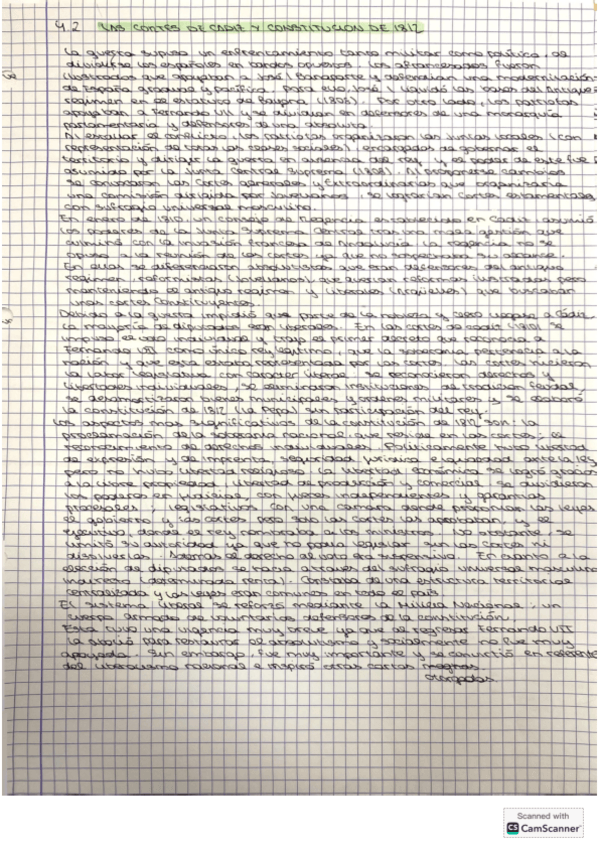 4.2 LAS CORTES DE CÁDIZ Y CONSTITUCIÓN DE 1812
La guerra supuso un enfrentamiento tanto militar como político, se
dividió a los españoles en bandos opuestos. Los afrancesados fueron
ilustrados que apoyaban a José I Bonaparte y defendían una modernización
de España gradual y pacífica. Para ello, José I liquidó las bases del Antiguo
régimen en el estatuto de Bayona (1808). Por otro lado, los patriotas
apoyaban a Fernando VII y se dividían en defensores de una monarquía
parlamentaria y defensores de una absoluta.
Al estallar el conflicto, los patriotas organizaron las juntas locales (con
representación de todas las clases sociales) encargadas de gobernar el
territorio y dirigir la guerra en ausencia del rey, y el poder de este fue
asumido por la Junta Central Suprema (1808). Al proponerse cambios
se convocaron las Cortes Generales y Extraordinarias que organizaría
una comisión dirigida por Jovellanos, se lograrían Cortes estamentales
con sufragio universal masculino.
En enero de 1810, un consejo de Regencia establecido en Cádiz, asumió
los poderes de la Junta Suprema Central tras una mala gestión que
culminó con la invasión francesa de Andalucía. La regencia no se
opuso a la reunión de las cortes ya que no sospechaba su alcance.
En ellas se diferenciaron absolutistas que eran defensores del antiguo
régimen, reformistas (Jovellanos), que querían reformas ilustradas pero
manteniendo el antiguo régimen y liberales (Argüelles) que buscaban
unas cortes constituyentes.
Debido a la guerra impidió que parte de la nobleza y clero llegara a Cádiz
La mayoría de diputados eran liberales. En las cortes de Cádiz (1810) se
impuso el voto individual y trajo el primer decreto que reconocía a
Fernando VII como único rey legítimo, que la soberanía pertenecía a la
nación y que esta estaba representada por las cortes. Las cortes hicieron
la labor legislativa con carácter liberal. Se reconocieron derechos y
libertades individuales, se eliminaron instituciones de tradición feudal,
se desamortizaron bienes municipales y órdenes militares y se elaboró
la constitución de 1812 (la Pepa) sin participación del rey.
Los aspectos más significativos de la constitución de 1812 son: la
proclamación de la soberanía nacional, que reside en las cortes, el
reconocimiento de derechos individuales. Políticamente hubo libertad
de expresión y de imprenta, seguridad jurídica e igualdad ante la ley
pero no hubo libertad religiosa. La libertad económica se logró gracias
a la libre propiedad, libertad de producción y comercial. Se dividieron
los poderes en judicial, con jueces independientes y garantías
procesales; legislativos con una cámara donde proponían las leyes
el gobierno y las cortes pero solo las cortes las aprobaban, y el
ejecutivo, donde el rey nombraba a los ministros. No obstante, se
limitó su autoridad ya que no podía legislar sin las cortes ni
disolverlas. Además el derecho al voto era suspensivo. En cuanto a la
elección de diputados se hacía a través del sufragio universal masculino
indirecto (determinada renta). Constaba de una estructura territorial
centralizada y las leyes eran comunes en todo el país.
El sistema liberal se reforzó mediante la Milicia Nacional, un
cuerpo armado de voluntarios defensores de la constitución.
Esta tuvo una vigencia muy breve ya que al regresar Fernando VII
la abolió para restaurar el absolutismo y socialmente no fue muy
apoyada. Sin embargo, fue muy importante y se convirtió en referente
del liberalismo nacional e inspiró otras cartas magnas
otorgadas.
Scanned with
CS CamScanner